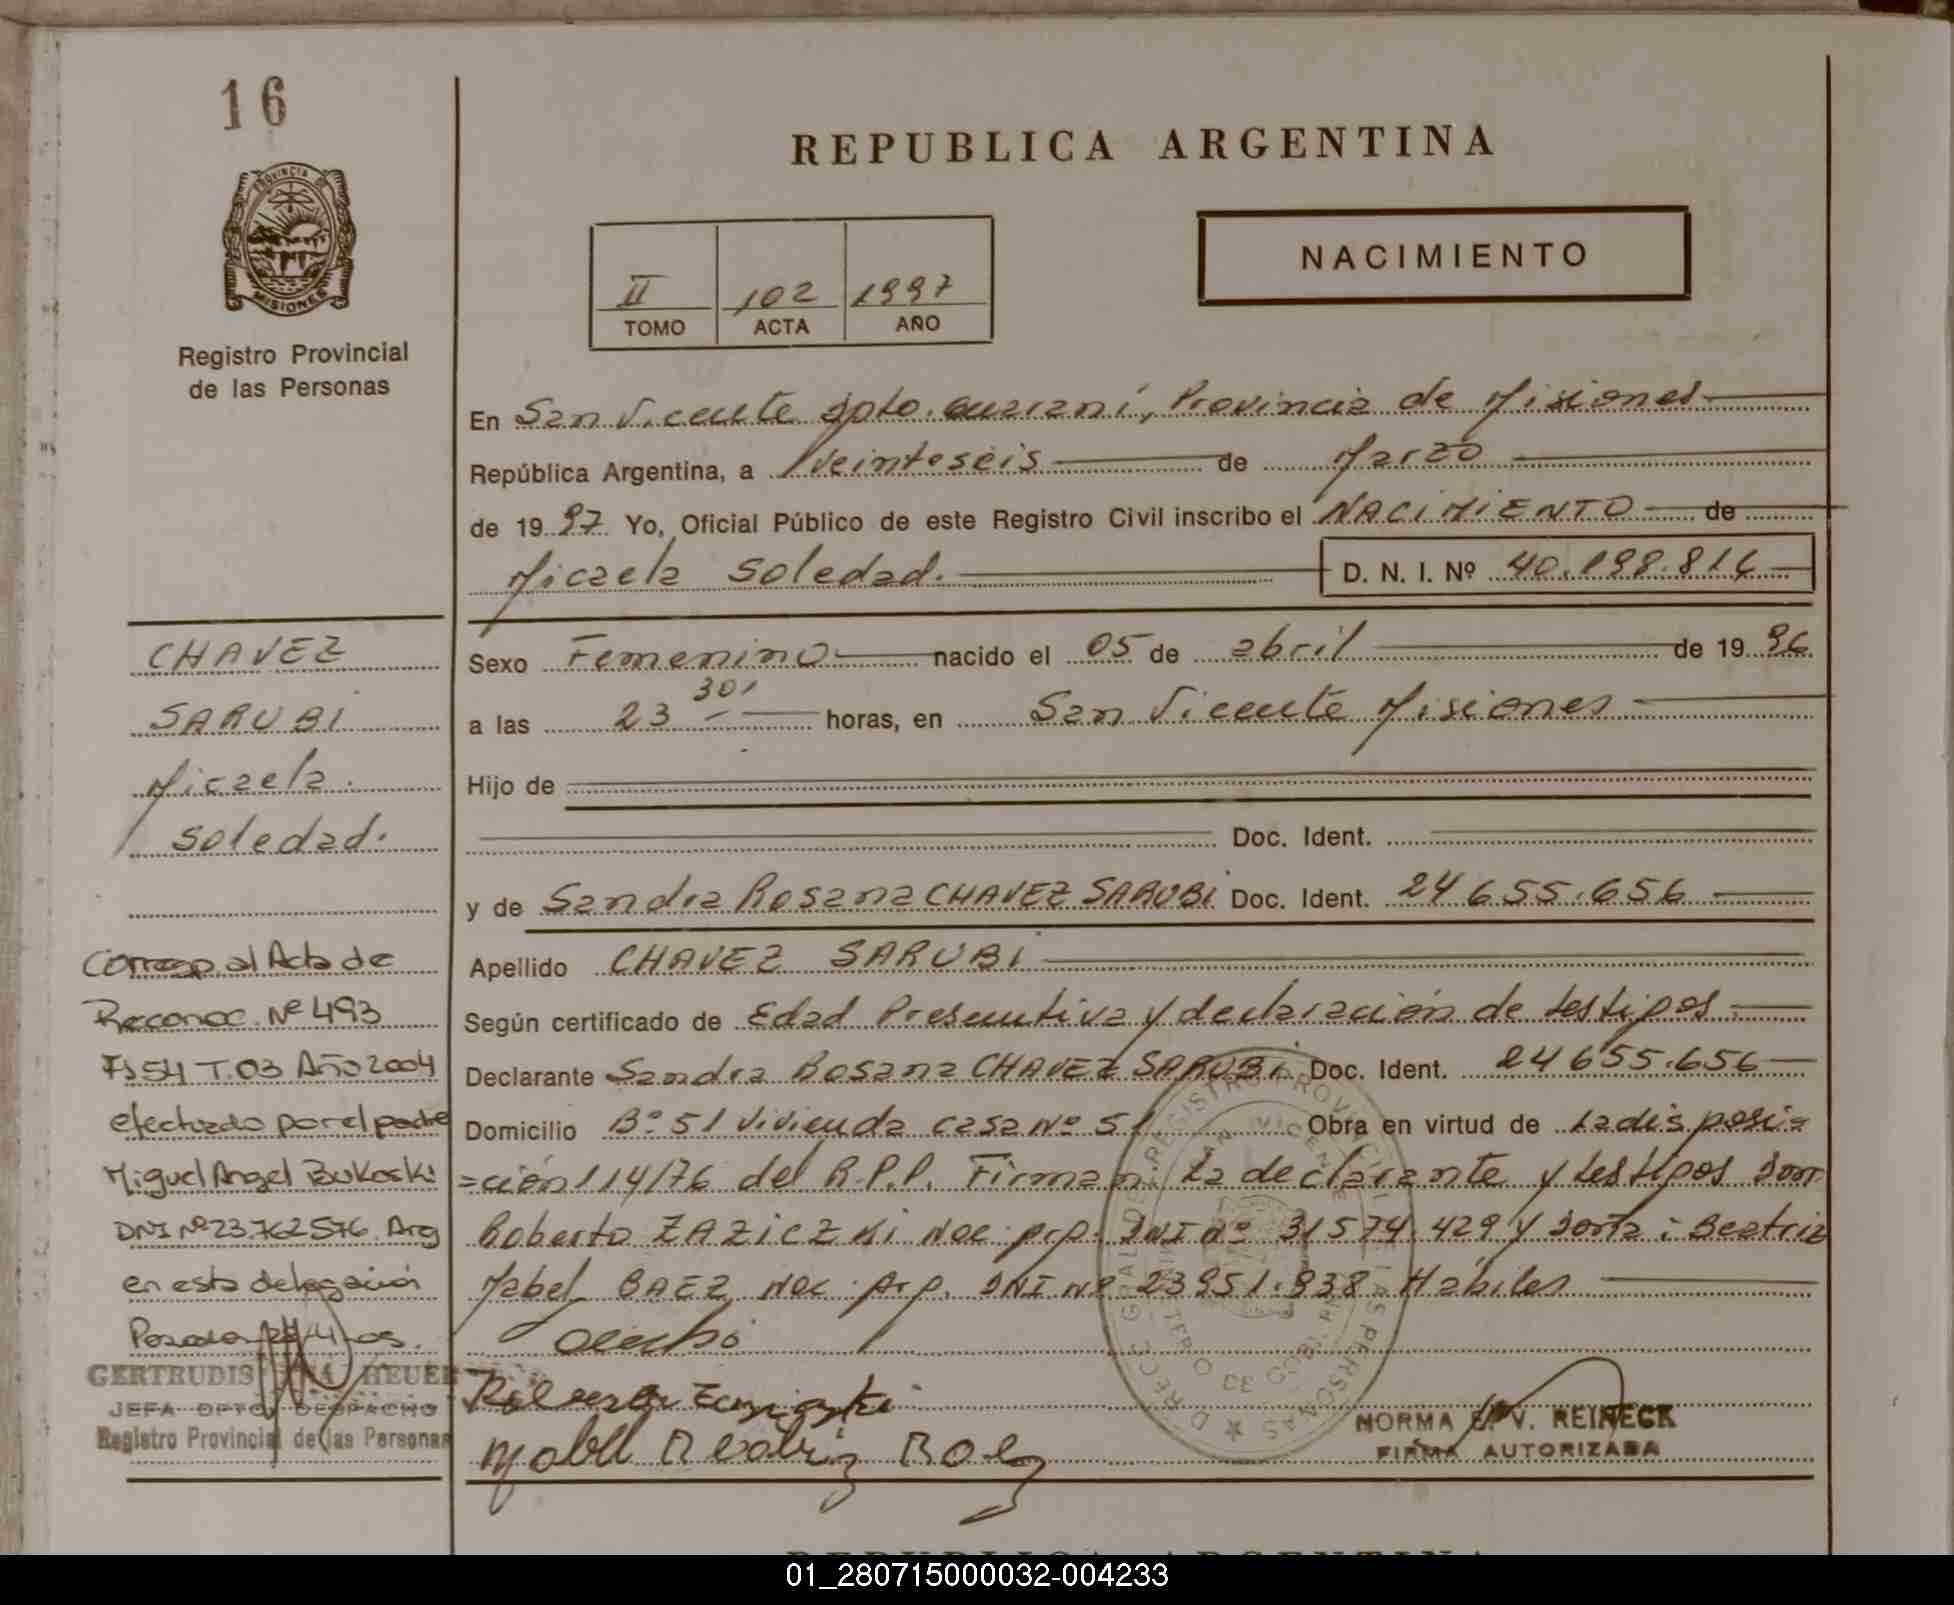 16
REPUBLICA ARGENTINA
PROVINCIA DE
MISIONES
Registro Provincial
de las Personas
NACIMIENTO
II 102 1997
TOMO ACTA AÑO
En San Vicente Dpto. Guaraní, Provincia de Misiones
República Argentina, a Veintoseis de Marzo
de 1997 Yo, Oficial Público de este Registro Civil inscribo el NACIMIENTO de
Micaela Soledad. D. N. I. Nº 40.198.816
Sexo Femenino nacido el 05 de abril de 1996
a las 23 30' horas, en San Vicente Misiones
Hijo de
Doc. Ident.
y de Sandra Rosana CHAVEZ SARUBI Doc. Ident. 24655.656
Apellido CHAVEZ SARUBI
Según certificado de Edad Presuntiva y declaración de testigos
Declarante Sandra Rosana CHAVEZ SARUBI Doc. Ident. 24655.656
Domicilio Bº 51 Vivienda casa Nº 51 Obra en virtud de La disposi=
=ción 114/76 del R.P.P. Firman: La declarante y testigos Don
Roberto ZAZICZKI Nac. prp. DNI Nº 31574.429 y Doña: Beatriz
Mabel BAEZ Nac. Arg. DNI Nº 23951.938 Hábiles
CHAVEZ
SARUBI
Micaela
Soledad.
Corresp al Acta de
Reconoc. Nº 493
Fs 54 T.03 Año 2004
efectuado por el padre
Miguel Angel Bukoski
DNI Nº 23.762576 Arg
en esta delegación
Posadas 29/4/05.
GERTRUDIS REUER
JEFA DPTO. DESPACHO
Registro Provincial de las Personas
Mabel Beatriz Baez
NORMA E. V. REINECK
FIRMA AUTORIZADA
REPUBLICA ARGENTINA
01_280715000032-004233